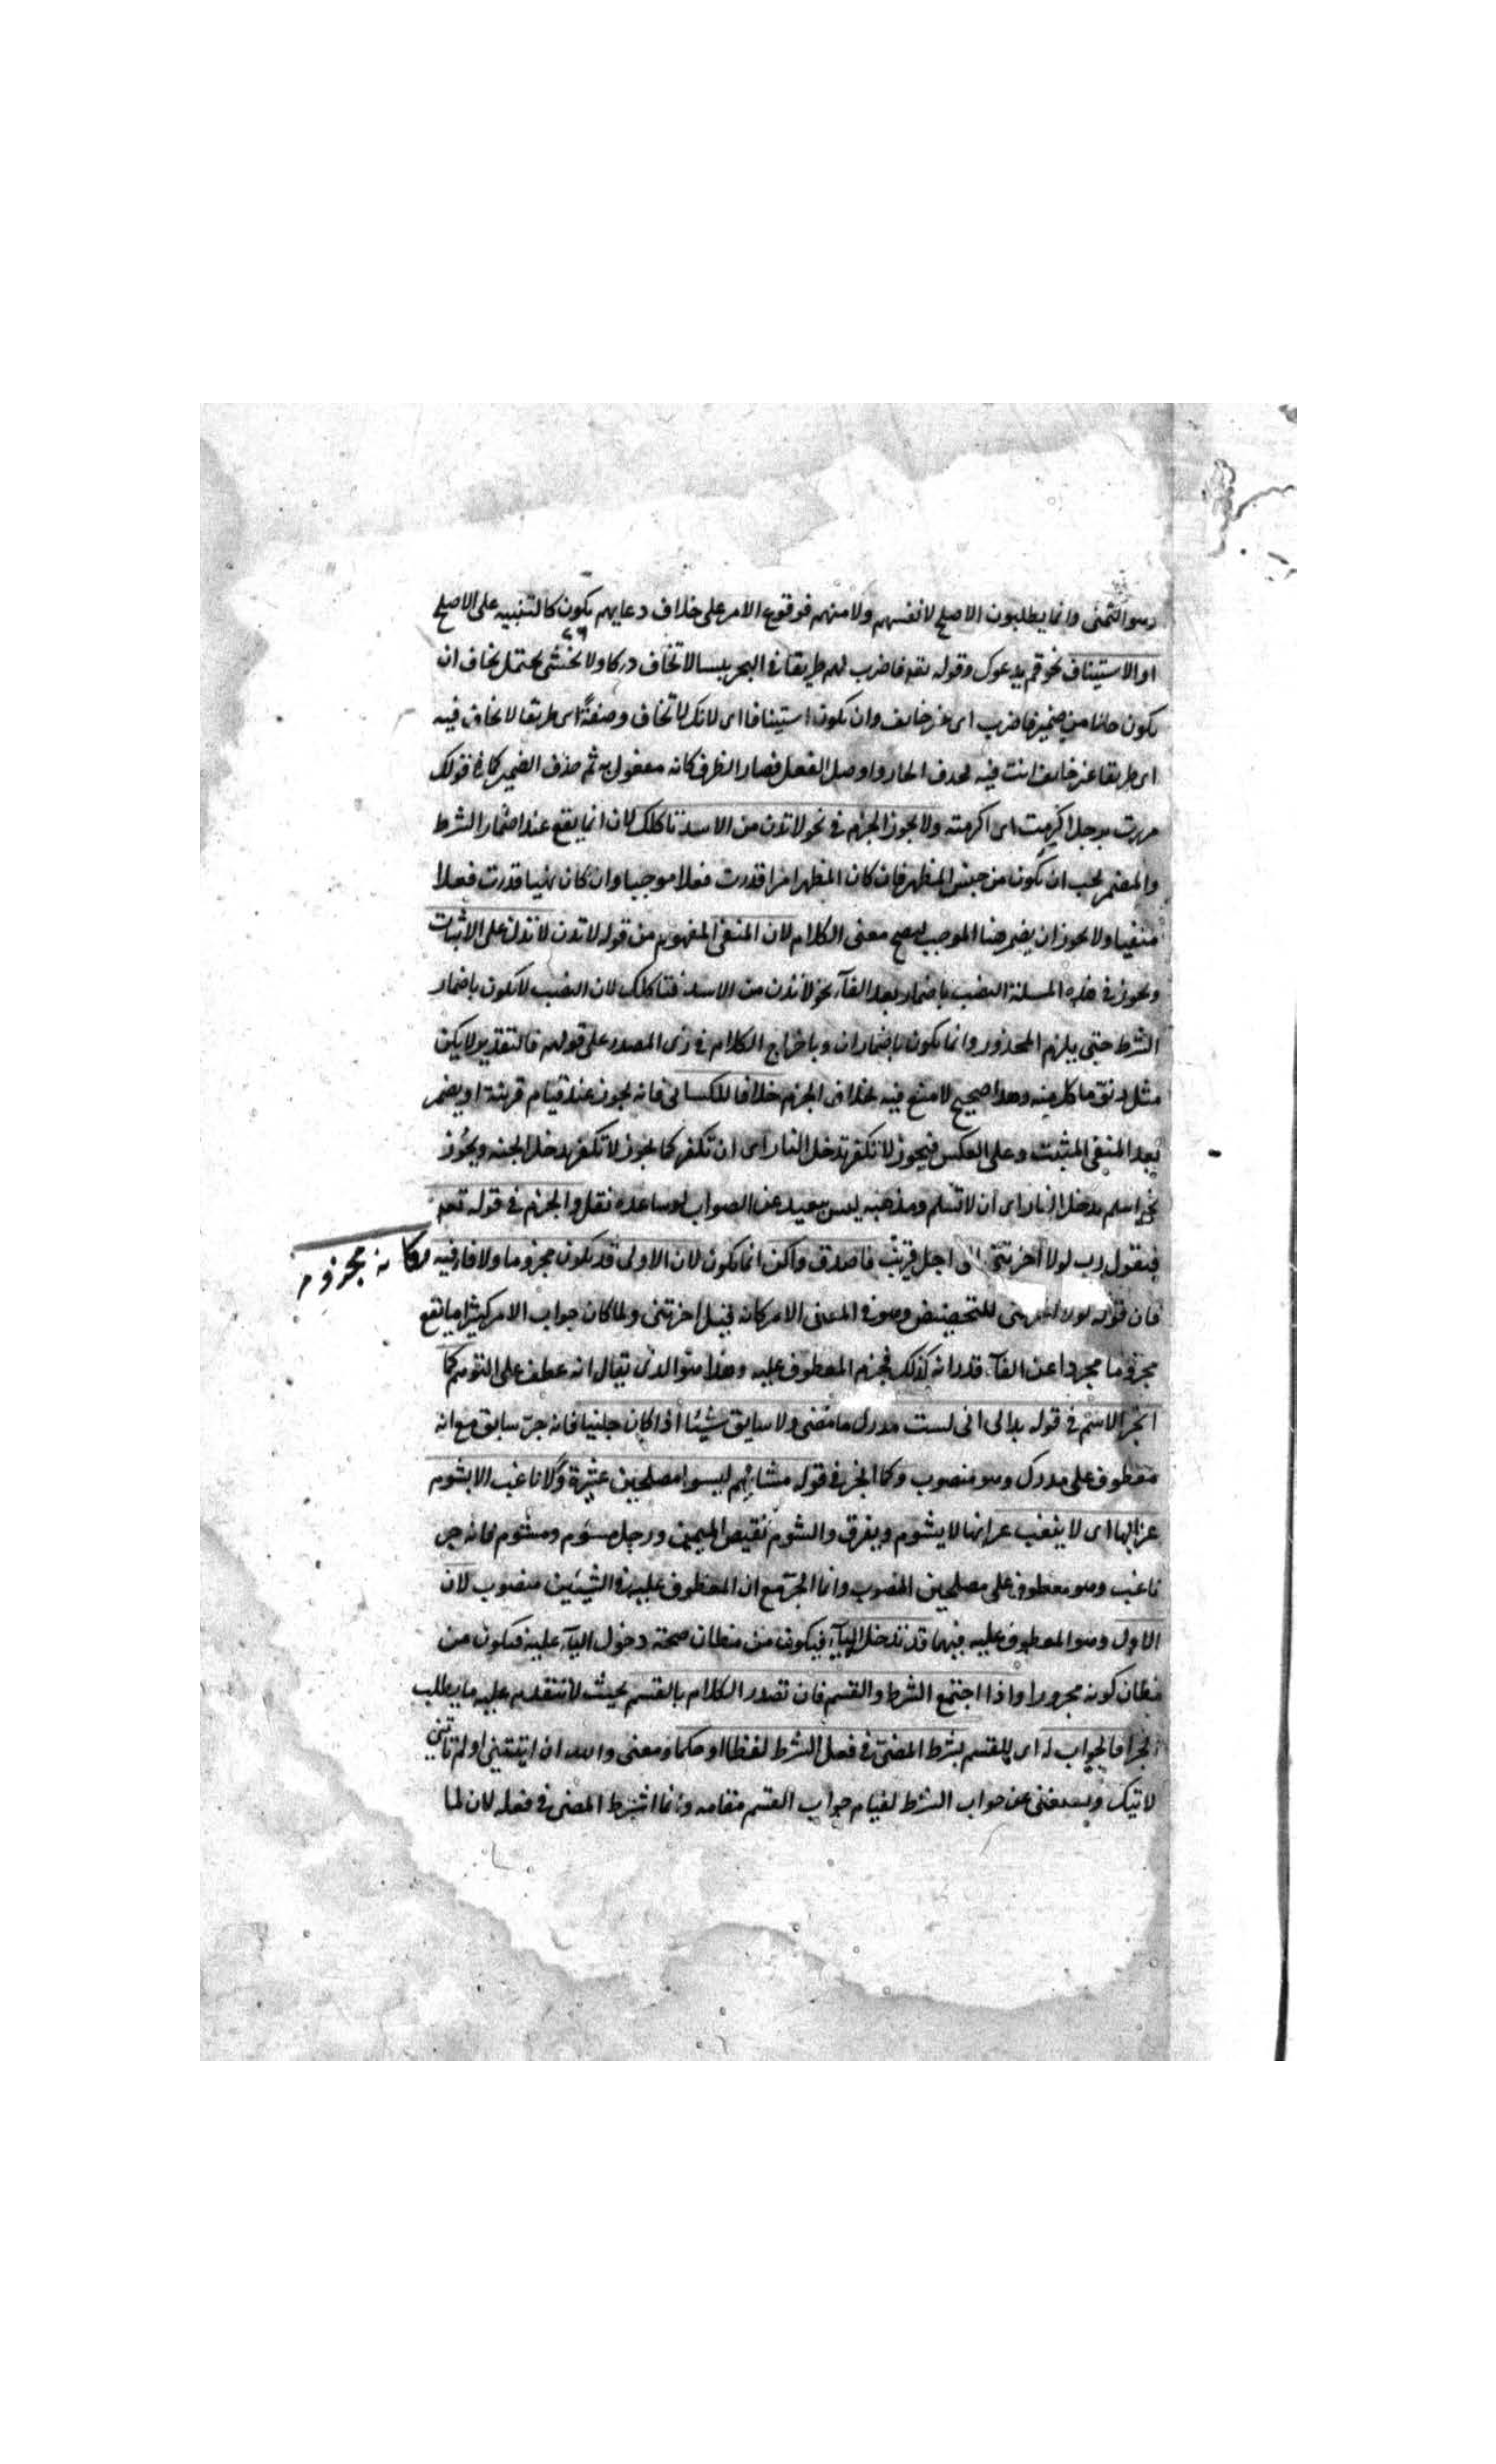 وهو التمنى وانما يطلبون الاصلح لانفسهم ولامنهم فوقوع الامر على خلاف دعايهم يكون كالتنبيه على الاصلح
او الاستيناف نحو قم يدعوك وقوله تعه فاضرب لهم طريقا فى البحر يبسا لا تخاف دركا ولا تخشى يحتمل تخاف ان
يكون حالا من ضمير فاضرب اى غير خايف وان يكون استينافا اى لانك لا تخاف وصفة اى طريقا لا تخاف فيه
اى طريقا غير خايف انت فيه فحذف الجار واوصل الفعل فصار الظرف كانه مفعول به ثم حذف الضمير كما فى قولك
مررت برجل اكرمت اى اكرمته ولا يجوز الجزم فى نحو لا تدن من الاسد تاكلك لان انما يقع عند اضمار الشرط
والمضمر يجب ان يكون من جنس المظهر فان كان المظهر امرا قدرت فعلا موجبا وان كان نهيا قدرت فعلا
منفيا ولا يجوز ان يضمر هنا الموجب ليصح معنى الكلام لان المنفى المفهوم من قوله لا تدن لا تدل على الاثبات
ويجوز فى هذه المسلة النصب باضمار بعد الفآء نحو لا تدن من الاسد فتاكلك لان النصب لا يكون باضمار
الشرط حتى يلزم المحذور وانما يكون باضمار ان وباخراج الكلام فى زى المصدر على قولهم فالتقدير لا يكن
مثل دنو فاكل منه وهذا صحيح لا منع فيه بخلاف الجزم خلافا للكسائى فانه يجوز عند قيام قرينة او يضمر
بعد المنفى المثبت وعلى العكس فيجوز لا تكفر تدخل النار اى ان تكفر كما يجوز لا تكفر تدخل الجنه ويجوز
نحو اسلم تدخل النار اى ان لا تسلم ومذهبه ليس ببعيد عن الصواب لو ساعده نقل والجزم فى قوله تعه
فيقول رب لولا اخرتنى الى اجل قريب فاصدق واكن انما يكون لان الاولى قد يكون مجزوما ولا فا فيه
فكانه مجزوم
فان قوله لولا اخرتنى للتحضيض وهو فى المعنى الامر كانه قيل اخرتنى ولما كان جواب الامر كثيرا ما يقع
مجزوما مجردا عن الفآء قدر انه كذلك فجزم المعطوف عليه وهذا هو الذى يقال انه عطف على التوهم كما
انجر الاسم فى قوله بدا لى انى لست مدرك ما مضى ولا سابق شيئا اذا كان جائيا فانه جر سابق مع انه
معطوف على مدرك وهو منصوب وكما الجر فى قوله مشائيم ليسوا مصلحين عشيرة ولا ناعب الا بشوم
غرابها اى لا ينعب غرابها الا بشوم وبفرق والشوم نقيض اليمن ورجل مشوم ومشئوم فانه جر
ناعب وهو معطوف على مصلحين المنصوب وانما الجر مع ان المعطوف عليه فى الشيئين منصوب لان
الاول وهو المعطوف عليه فيهما قد تدخل البآء فيكون من مظان صحة دخول البآء عليه فيكون من
مظان كونه مجرورا واذا اجتمع الشرط والقسم فان تصدر الكلام بالقسم بحيث لا يتقدم عليه ما يطلب
الجزا فالجواب له اى للقسم بشرط المضى فى فعل الشرط لفظا او حكما ومعنى والله ان اتيتنى او لم تاتنى
لاتيك ويستغنى عن جواب الشرط لقيام جواب القسم مقامه وانما اشترط المضى فى فعله لان لما